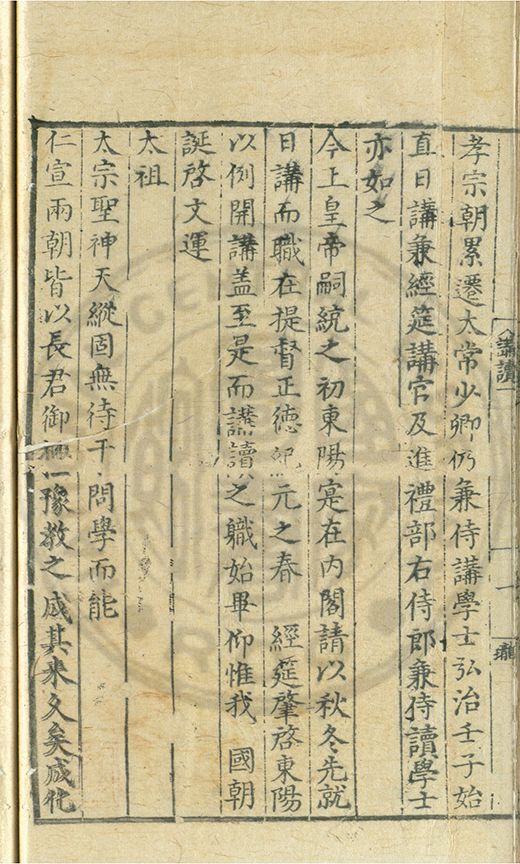 孝宗朝累遷太常少卿仍兼侍講學士弘治壬子始
直日講兼經筵講官及進禮部右侍郎兼侍讀學士
亦如之
今上皇帝嗣統之初東陽寔在内閣請以秋冬先就
日講而職在提督正德紀元之春　經筵肇啓東陽
以例開講盖至是而講讀之職始畢仰惟我　國朝
誕啓文運
太祖
太宗聖神天縱固無待于問學而能
仁宣兩朝皆以長君御極豫教之成其来久矣成化
講讀一
一